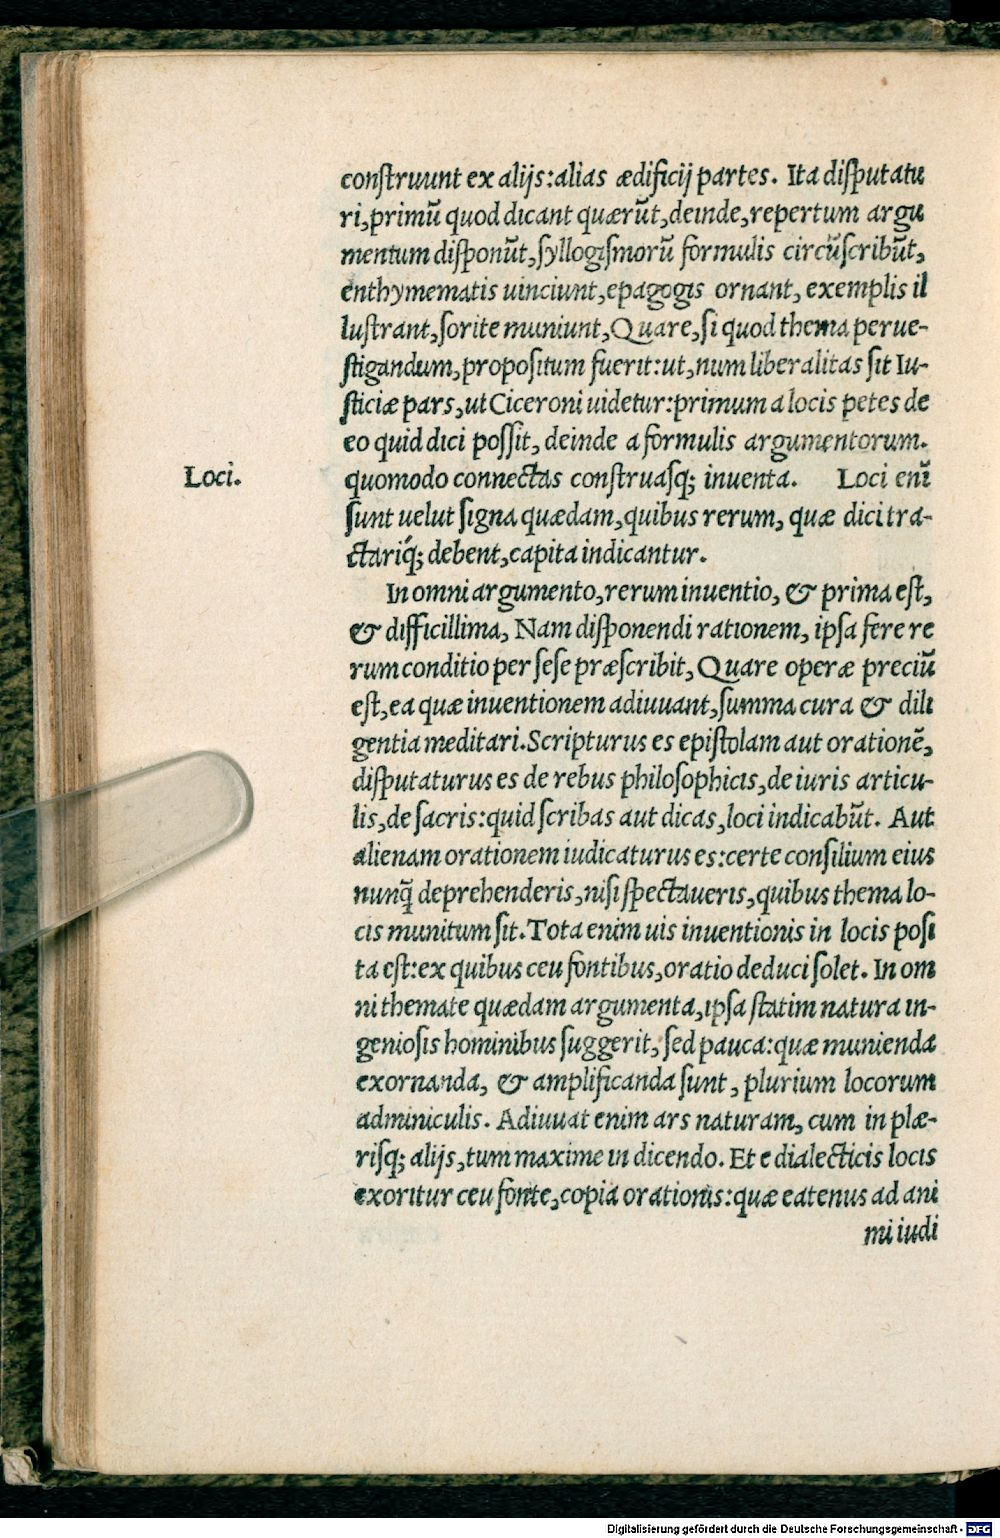 construunt ex alijs:alias ædificij partes. Ita disputatu
ri,primū quod dicant quærūt,deinde,repertum argu
mentum disponūt,syllogismorū formulis circūscribūt,
enthymematis uinciunt,epagogis ornant, exemplis il
lustrant,sorite muniunt,Quare,si quod thema perue-
stigandum,propositum fuerit:ut,num liberalitas sit Iu-
sticiæ pars,ut Ciceroni uidetur:primum a locis petes de
eo quid dici possit, deinde a formulis argumentorum.
Loci.
quomodo connectas construasq; inuenta. Loci enī
sunt uelut signa quædam,quibus rerum, quæ dici tra-
ctariq́; debent,capita indicantur.
In omni argumento,rerum inuentio, & prima est,
& difficillima, Nam disponendi rationem, ipsa fere re
rum conditio per sese præscribit, Quare operæ preciū
est,ea quæ inuentionem adiuuant,summa cura & dili
gentia meditari.Scripturus es epistolam aut orationē,
disputaturus es de rebus philosophicis,de iuris articu-
lis,de sacris:quid scribas aut dicas,loci indicabūt. Aut
alienam orationem iudicaturus es:certe consilium eius
nunq̄ deprehenderis,nisi spectaueris,quibus thema lo-
cis munitum sit.Tota enim uis inuentionis in locis posi
ta est:ex quibus ceu fontibus,oratio deduci solet. In om
ni themate quædam argumenta,ipsa statim natura in-
geniosis hominibus suggerit, sed pauca:quæ munienda
exornanda, & amplificanda sunt, plurium locorum
adminiculis. Adiuuat enim ars naturam, cum in plæ-
risq; alijs,tum maxime in dicendo. Et e dialecticis locis
exoritur ceu fonte,copia orationis:quæ eatenus ad ani
mi iudi
Digitalisierung gefördert durch die Deutsche Forschungsgemeinschaft - DFG